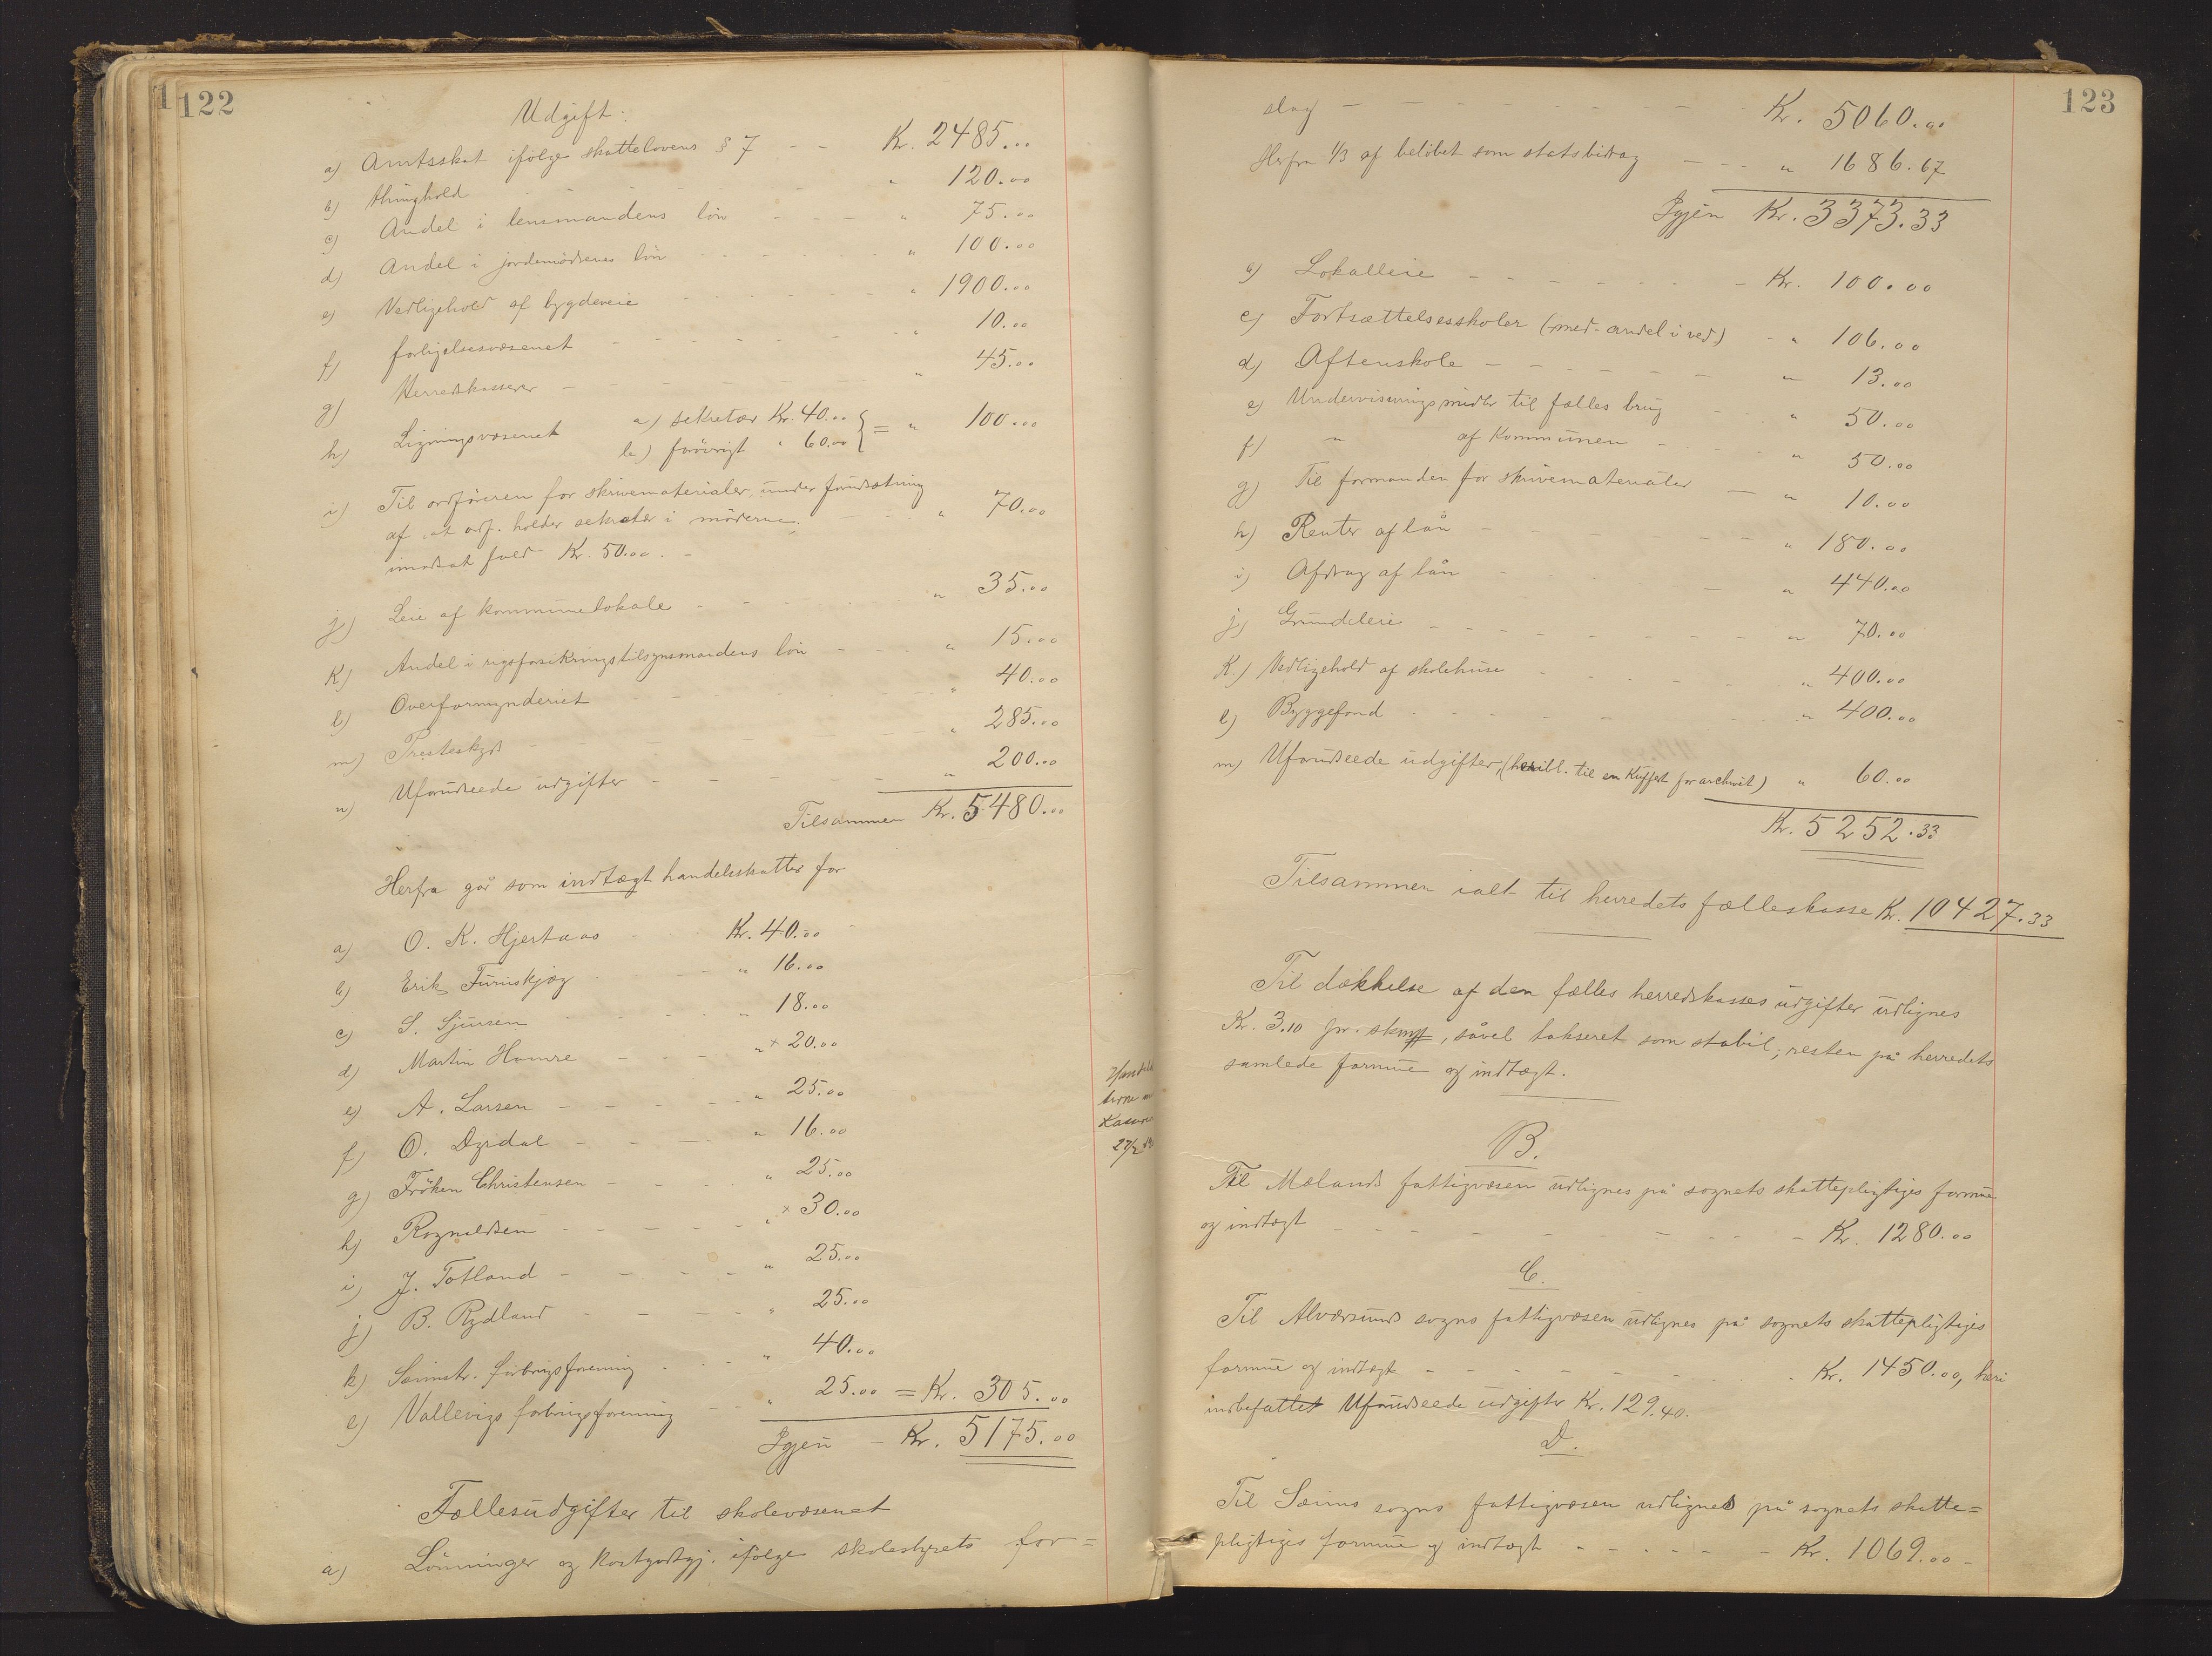 122
Udgift:
a) Amtsskat ifölge skattelovens § 7 - - Kr. 2485...
b) thinghold - - - " 120.00
c) Andel i lensmandens lön - - - " 75.00
d) Andel i jordemödrenes lön - - - " 100.00
e) Vedligehold af bygdeveie - - - " 1900.00
f) forligelsesvæsenet - - - " 10.00
g) Herredskasserer - - - " 45.00
h) Ligningsvæsenet a) sekretær Kr. 40.00
b) forövrigt " 60.00 } = " 100.00
i) Til ordföreren for skrivematerialer, under forudsætning
af, at ordf. holder sekretær i möderne, - - " 70.00
imodsat fald Kr. 50.00. -
j) Leie af kommunelokale - - - " 35.00
K) Andel i tilsynsmandens lön - - - " 15.00
l) Overformynderiet - - - " 40.00
m) Presteskyds - - - " 285.00
n) Uforudseede udgifter - - - " 200.00
Tilsammen Kr. 5480.00
Herfra går som indtægt handelsskatter for
a) O. K. Hjertaas - Kr. 40.00
b) Erik Furuskjæg - - " 16.00
c) S. Sjursen - - " 18.00
d) Martin Hamre - - - " + 20.00
e) A. Larsen - - - " 25.00
f) O. Dyrdal - - - " 16.00
g) Fröken Christensen - - " 25.00
h) Rognaldsen - - - " + 30.00
i) J. Totland - - - " 25.00
j) B. Rydland - - - " 25.00
k) Seimstr. forbrugsforening - - " 40.00
l) Vallevigs forbrugsforening - " 25.00 = Kr. 305.00
Igjen - Kr. 5175.00
Fællesudgifter til skolevæsenet
a) Lönninger og Kostgodtgj. ifölge skolestyrets for=
123
slag - - - Kr. 5060.00
Herfra 1/3 af belöbet som statsbidrag - - - " 1686.67
Igjen Kr. 3373.33
b) Lokalleie - - - Kr. 100.00
c) Fortsættelsesskoler (med andel i ved) - " 106.00
d) Aftenskole - - - " 13.00
e) Undervisningsmidler til fælles brug - " 50.00
f) " af Kommunen - " 50.00
g) Til formanden for skrivematerialer - " 10.00
h) Renter af lån - - - " 180.00
i) Afdrag af lån - - - " 440.00
j) Grundleie - - - " 70.00
K.) Vedligehold af skolehuse - - - " 400.00
l) Byggefond - - - " 400.00
m) Uforudseede udgifter, (heribl. til en Kuffert for archivet) " 60.00
Kr. 5252.33
Tilsammen ialt til herredets fælleskasse Kr. 10427.33
Til dækkelse af den fælles herredskasses udgifter udlignes
Kr. 3.10 pr. , såvel takseret som stabil; resten på herredets
samlede formue og indtægt.
B.
Til Mælands fattigvæsen udlignes på sognets skattepligtiges formue
og indtægt - - - Kr. 1280.00
C.
Til Alværsunds sogns fattigvæsen udlignes på sognets skattepligtiges
formue og indtægt - - - Kr. 1450.00, heri
indbefattet Uforudseede udgifter Kr. 129.40.
D.
Til Sæims sogns fattigvæsen udlignes på sognets skatte=
pligtiges formue og indtægt - - - Kr. 1069.00 -